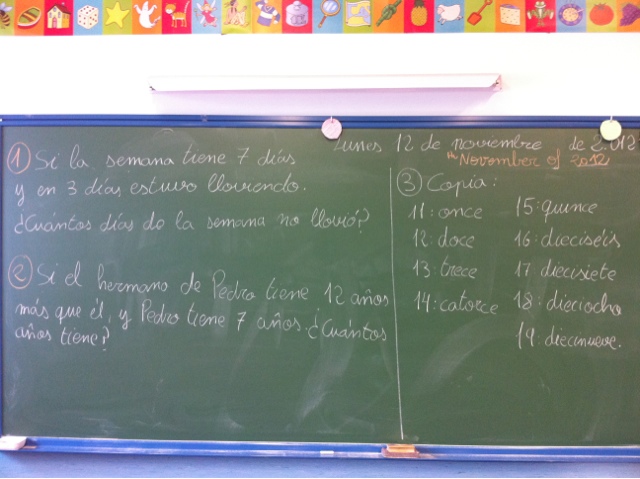 Lunes 12 de noviembre de 2.012
th November of 2012
① Si la semana tiene 7 días
y en 3 días estuvo lloviendo.
¿Cuántos días de la semana no llovió?
② Si el hermano de Pedro tiene 12 años
más que él, y Pedro tiene 7 años. ¿Cuántos
años tiene?
③ Copia:
11: once
12: doce
13: trece
14: catorce
15: quince
16: dieciséis
17 diecisiete
18: dieciocho
19: diecinueve.